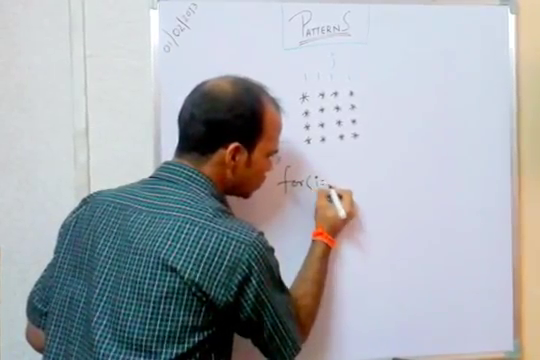 01/02/2013
PATTERNS
j
* * * *
* * * *
* * * *
* * * *
for(i=